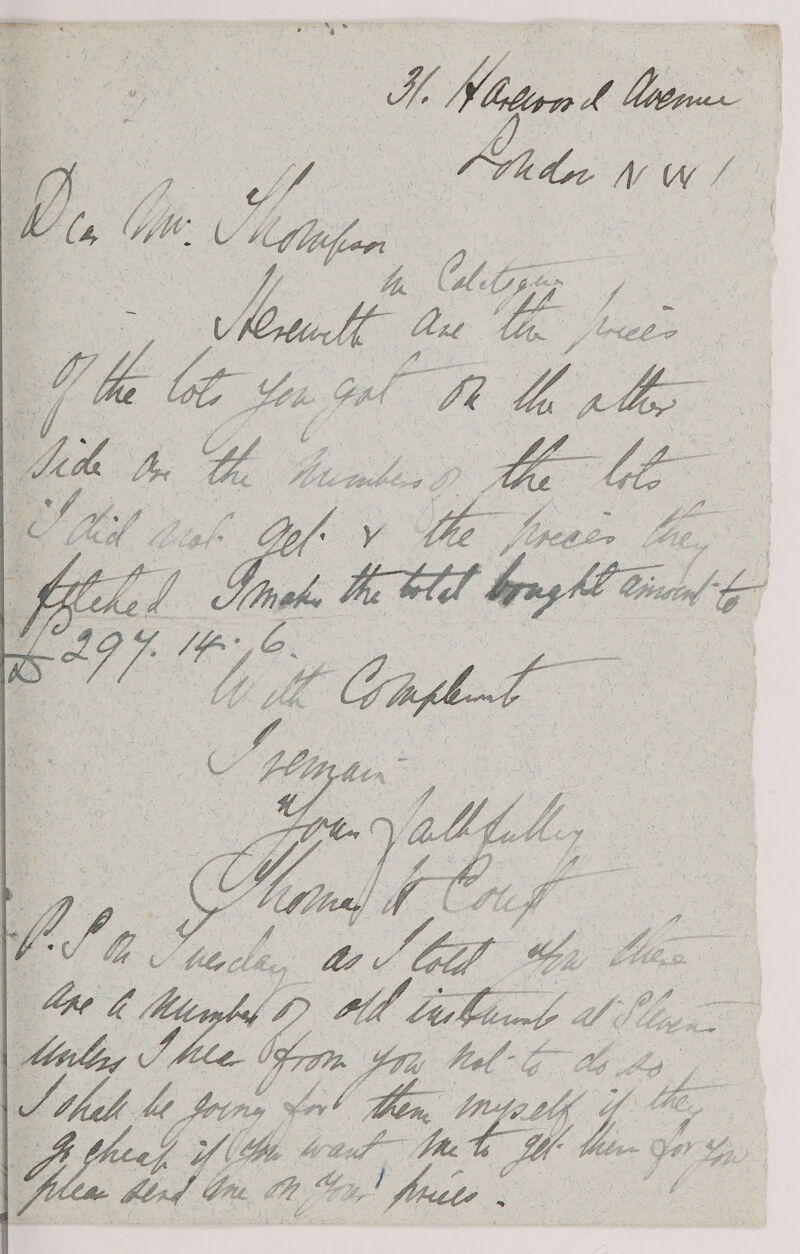 31. Harewood Avenue
London N W 1
Dear Mr. Thompson
in Catalogue
Herewith are the prices
of the lots you got on the other
side are the numbers of the lots
I did not get & the prices they
fetched I make the total bought amount to
£297. 14. 6.
With Compliments
I remain
Yours faithfully
Thomas H Court
P.S on Tuesday as I told you there
are a number of old instruments at Stevens
unless I hear from you not to do so
I shall be going for them myself if they
go cheap if you want me to get them for you
please send me on your prices.